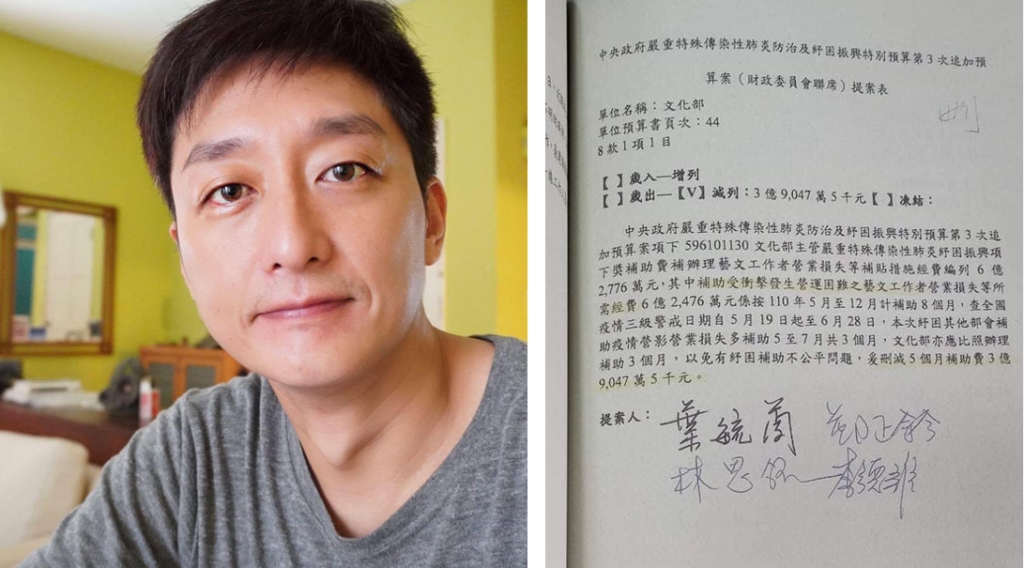 中央政府嚴重特殊傳染性肺炎防治及紓困振興特別預算第3次追加預
算案（財政委員會聯席）提案表
單位名稱：文化部
單位預算書頁次：44
8款1項1目
【 】歲入—增列
【 】歲出—【V】減列：3億9,047萬5千元【 】凍結：
中央政府嚴重特殊傳染性肺炎防治及紓困振興特別預算第3次追
加預算案項下 596101130 文化部主管嚴重特殊傳染性肺炎紓困振興項
下獎補助費補辦理藝文工作者營業損失等補貼措施經費編列 6 億
2,776萬元，其中補助受衝擊發生營運困難之藝文工作者營業損失等所
需經費6億2,476萬元係按110年5月至12月計補助8個月，查全國
疫情三級警戒日期自5月19日起至6月28日，本次紓困其他部會補
助疫情營影營業損失多補助5至7月共3個月，文化部亦應比照辦理
補助3個月，以免有紓困補助不公平問題，爰刪減5個月補助費3億
9,047萬5千元。
提案人：葉毓蘭
林思銘 李德維